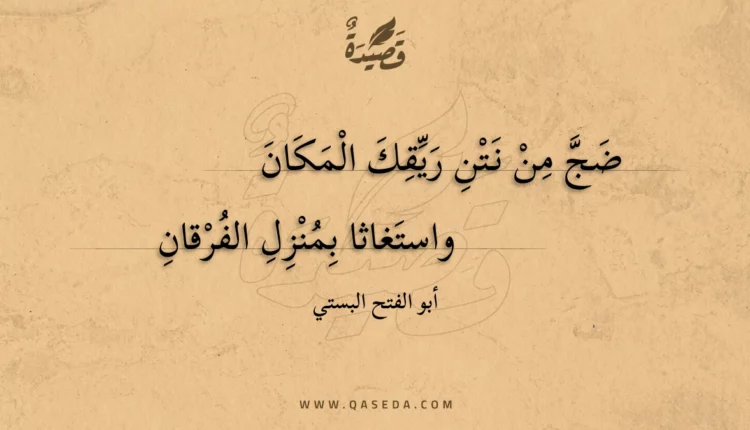 قَصِيْدَةٌ
ضَجَّ مِنْ نَتْنِ رَيِّقِكَ الْمَكَانَ
واستَغاثا بِمُنْزِلِ الفُرْقانِ
أبو الفتح البستي
WWW.QASEDA.COM